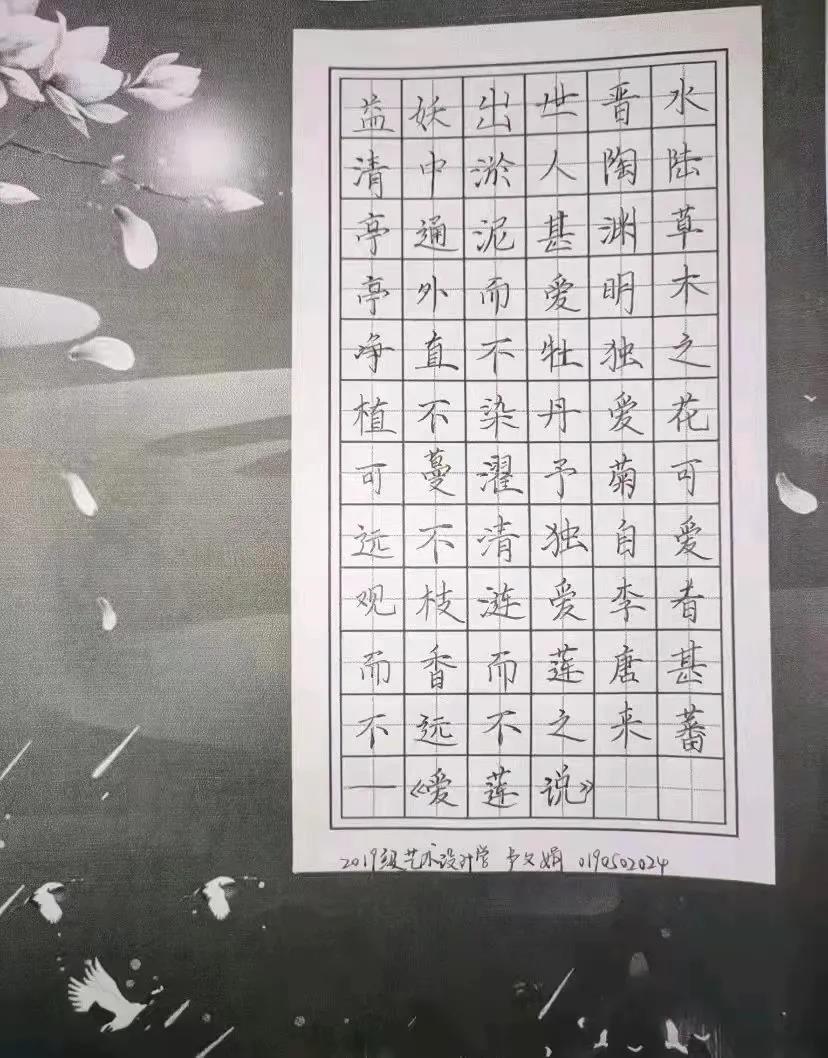 水陆草木之花可爱者甚蕃
晋陶渊明独爱菊自李唐来
世人甚爱牡丹予独爱莲之
出淤泥而不染濯清涟而不
妖中通外直不蔓不枝香远
益清亭亭净植可远观而不
—《爱莲说》
2019级艺术设计学 卢文娟 0190502024